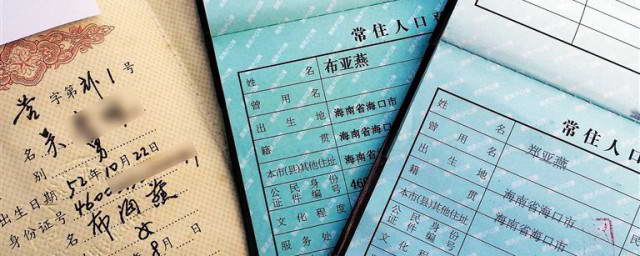 字第 1 号
名 吴
别 男
出生日期 52年10月22日
身份证号 4600
名 布海燕
女
8月
常住人口登
姓 名 布亚燕
曾 用 名
出 生 地 海南省海口市
籍 贯 海南省海口市
本市(县)其他住址 海南省海口市
公民身份
证件编号 460
文化程度
服务处
常住人口
姓 名 郑亚燕
曾 用 名
出 生 地 海南省海口市
籍 贯 海南省海口市
本市(县)其他住址
公民身份
证件编号
文化程度